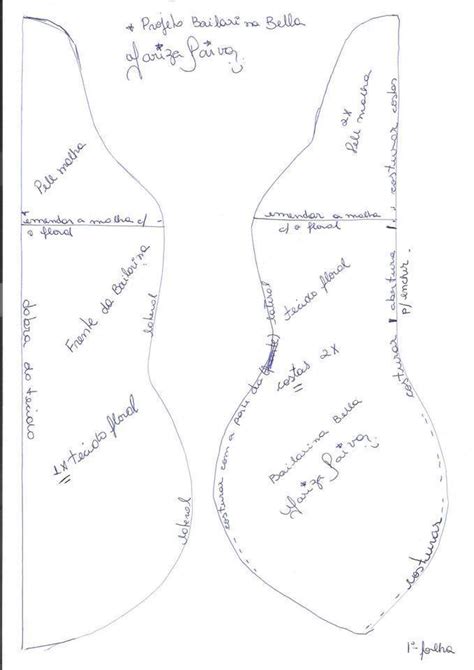 * Projeto Bailarina Bella
Mariza Paiva
Pele malha
emendar a malha c/
o floral
Frente da Bailarina
lateral
dobra do tecido
1x tecido floral
lateral
2x
Pele malha
costurar costas
emendar a malha
c/ o floral
abertura
p/ encher.
lateral
tecido floral
costas 2x
costurar
costurar com a parte da
Bailarina Bella
Mariza Paiva
costurar
1ª folha